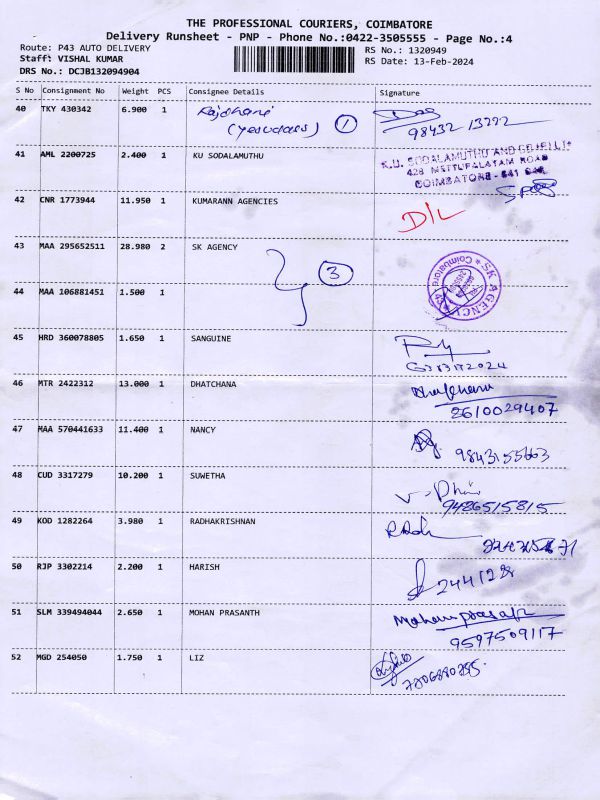 THE PROFESSIONAL COURIERS, COIMBATORE
Delivery Runsheet - PNP - Phone No.:0422-3505555 - Page No.:4
Route: P43 AUTO DELIVERY RS No.: 1320949
Staff: VISHAL KUMAR RS Date: 13-Feb-2024
DRS No.: DCJB132094904
S No Consignment No Weight PCS Consignee Details Signature
40 TKY 430342 6.900 1 Rajdhani
(Yesudass) 1 98432 13222
41 AML 2200725 2.400 1 KU SODALAMUTHU
K.U. SODALAMUTHU AND
428 METTUPALAYAM ROAD
COIMBATORE - 641
42 CNR 1773944 11.950 1 KUMARANN AGENCIES D/L
43 MAA 295652511 28.980 2 SK AGENCY 3
SK AGENCY Coimbatore
44 MAA 106881451 1.500 1
45 HRD 360078805 1.650 1 SANGUINE
46 MTR 2422312 13.000 1 DHATCHANA
8610029407
47 MAA 570441633 11.400 1 NANCY 9843155663
48 CUD 3317279 10.200 1 SUWETHA
9486515815
49 KOD 1282264 3.980 1 RADHAKRISHNAN
50 RJP 3302214 2.200 1 HARISH
51 SLM 339494044 2.650 1 MOHAN PRASANTH
9597509117
52 MGD 254050 1.750 1 LIZ